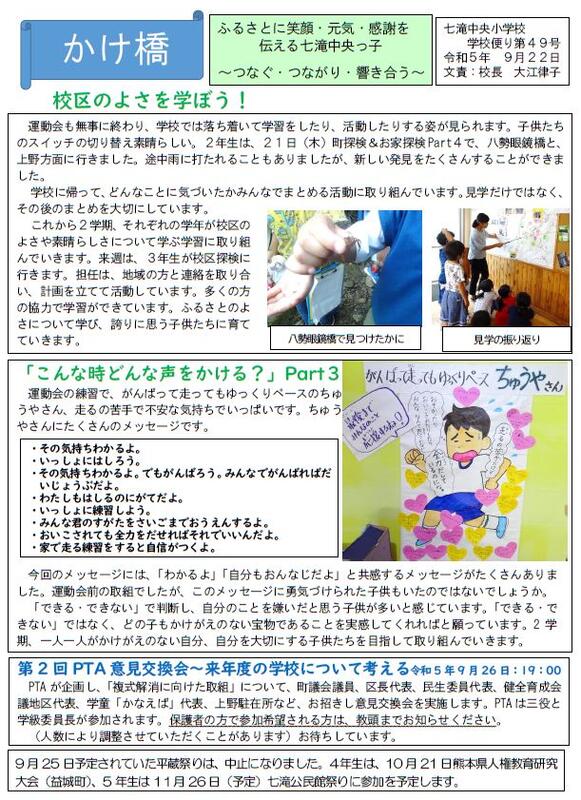 かけ橋
ふるさとに笑顔・元気・感謝を
伝える七滝中央っ子
~つなぐ・つながり・響き合う~
七滝中央小学校
学校便り第49号
令和5年 9月22日
文責:校長 大江律子
校区のよさを学ぼう!
運動会も無事に終わり、学校では落ち着いて学習をしたり、活動したりする姿が見られます。子供たち
のスイッチの切り替え素晴らしい。2年生は、21日(木)町探検&お家探検Part4で、八勢眼鏡橋と、
上野方面に行きました。途中雨に打たれることもありましたが、新しい発見をたくさんすることができま
した。
学校に帰って、どんなことに気づいたかみんなでまとめる活動に取り組んでいます。見学だけではなく、
その後のまとめを大切にしています。
これから2学期、それぞれの学年が校区の
よさや素晴らしさについて学ぶ学習に取り組
んでいきます。来週は、3年生が校区探検に
行きます。担任は、地域の方と連絡を取り合
い、計画を立てて活動しています。多くの方
の協力で学習ができています。ふるさとのよ
さについて学び、誇りに思う子供たちに育て
ていきます。
八勢眼鏡橋で見つけたかに
見学の振り返り
「こんな時どんな声をかける?」Part3
運動会の練習で、がんばって走ってもゆっくりペースのちゅ
うやさん、走るの苦手で不安な気持ちでいっぱいです。ちゅう
やさんにたくさんのメッセージです。
・その気持ちわかるよ。
・いっしょにはしろう。
・その気持ちわかるよ。でもがんばろう。みんなでがんばればだ
いじょうぶだよ。
・わたしもはしるのにがてだよ。
・いっしょに練習しよう。
・みんな君のすがたをさいごまでおうえんするよ。
・おいこされても全力をだせればそれでいいんだよ。
・家で走る練習をすると自信がつくよ。
がんばって走ってもゆっくりペース
ちゅうやさん
今回のメッセージには、「わかるよ」「自分もおんなじだよ」と共感するメッセージがたくさんありま
した。運動会前の取組でしたが、このメッセージに勇気づけられた子供もいたのではないでしょうか。
「できる・できない」で判断し、自分のことを嫌いだと思う子供が多いと感じています。「できる・で
きない」ではなく、どの子もかけがえのない宝物であることを実感してくれればと願っています。2学
期、一人一人がかけがえのない自分、自分を大切にする子供たちを目指して取り組んでいきます。
第2回PTA意見交換会~来年度の学校について考える令和5年9月26日:19:00
PTAが企画し、「複式解消に向けた取組」について、町議会議員、区長代表、民生委員代表、健全育成会
議地区代表、学童「かなえば」代表、上野駐在所など、お招きし意見交換会を実施します。PTAは三役と
学級委員長が参加されます。保護者の方で参加希望される方は、教頭までお知らせください。
(人数により調整させていただくことがあります)お待ちしています。
9月25日予定されていた平蔵祭りは、中止になりました。4年生は、10月21日熊本県人権教育研究
大会(益城町)、5年生は11月26日(予定)七滝公民館祭りに参加を予定します。